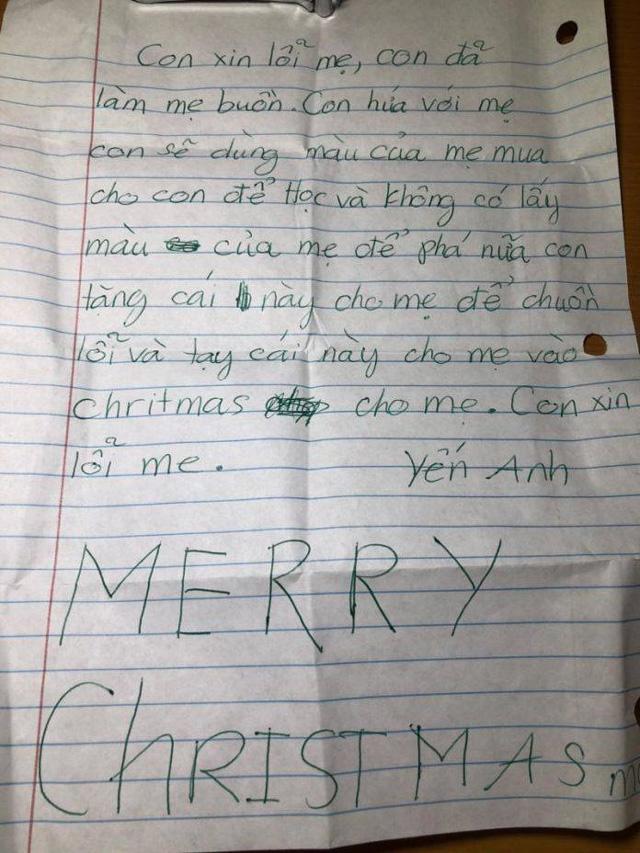 Con xin lỗi mẹ, con đã
làm mẹ buồn. Con hứa với mẹ
con sẽ dùng màu của mẹ mua
cho con để Học và không có lấy
màu của mẹ để phá nữa con
tặng cái này cho mẹ để chuồn
lỗi và tạy cái này cho mẹ vào
chritmas cho mẹ. Con xin
lỗi me. Yến Anh
MERRY
ChRISTMAS